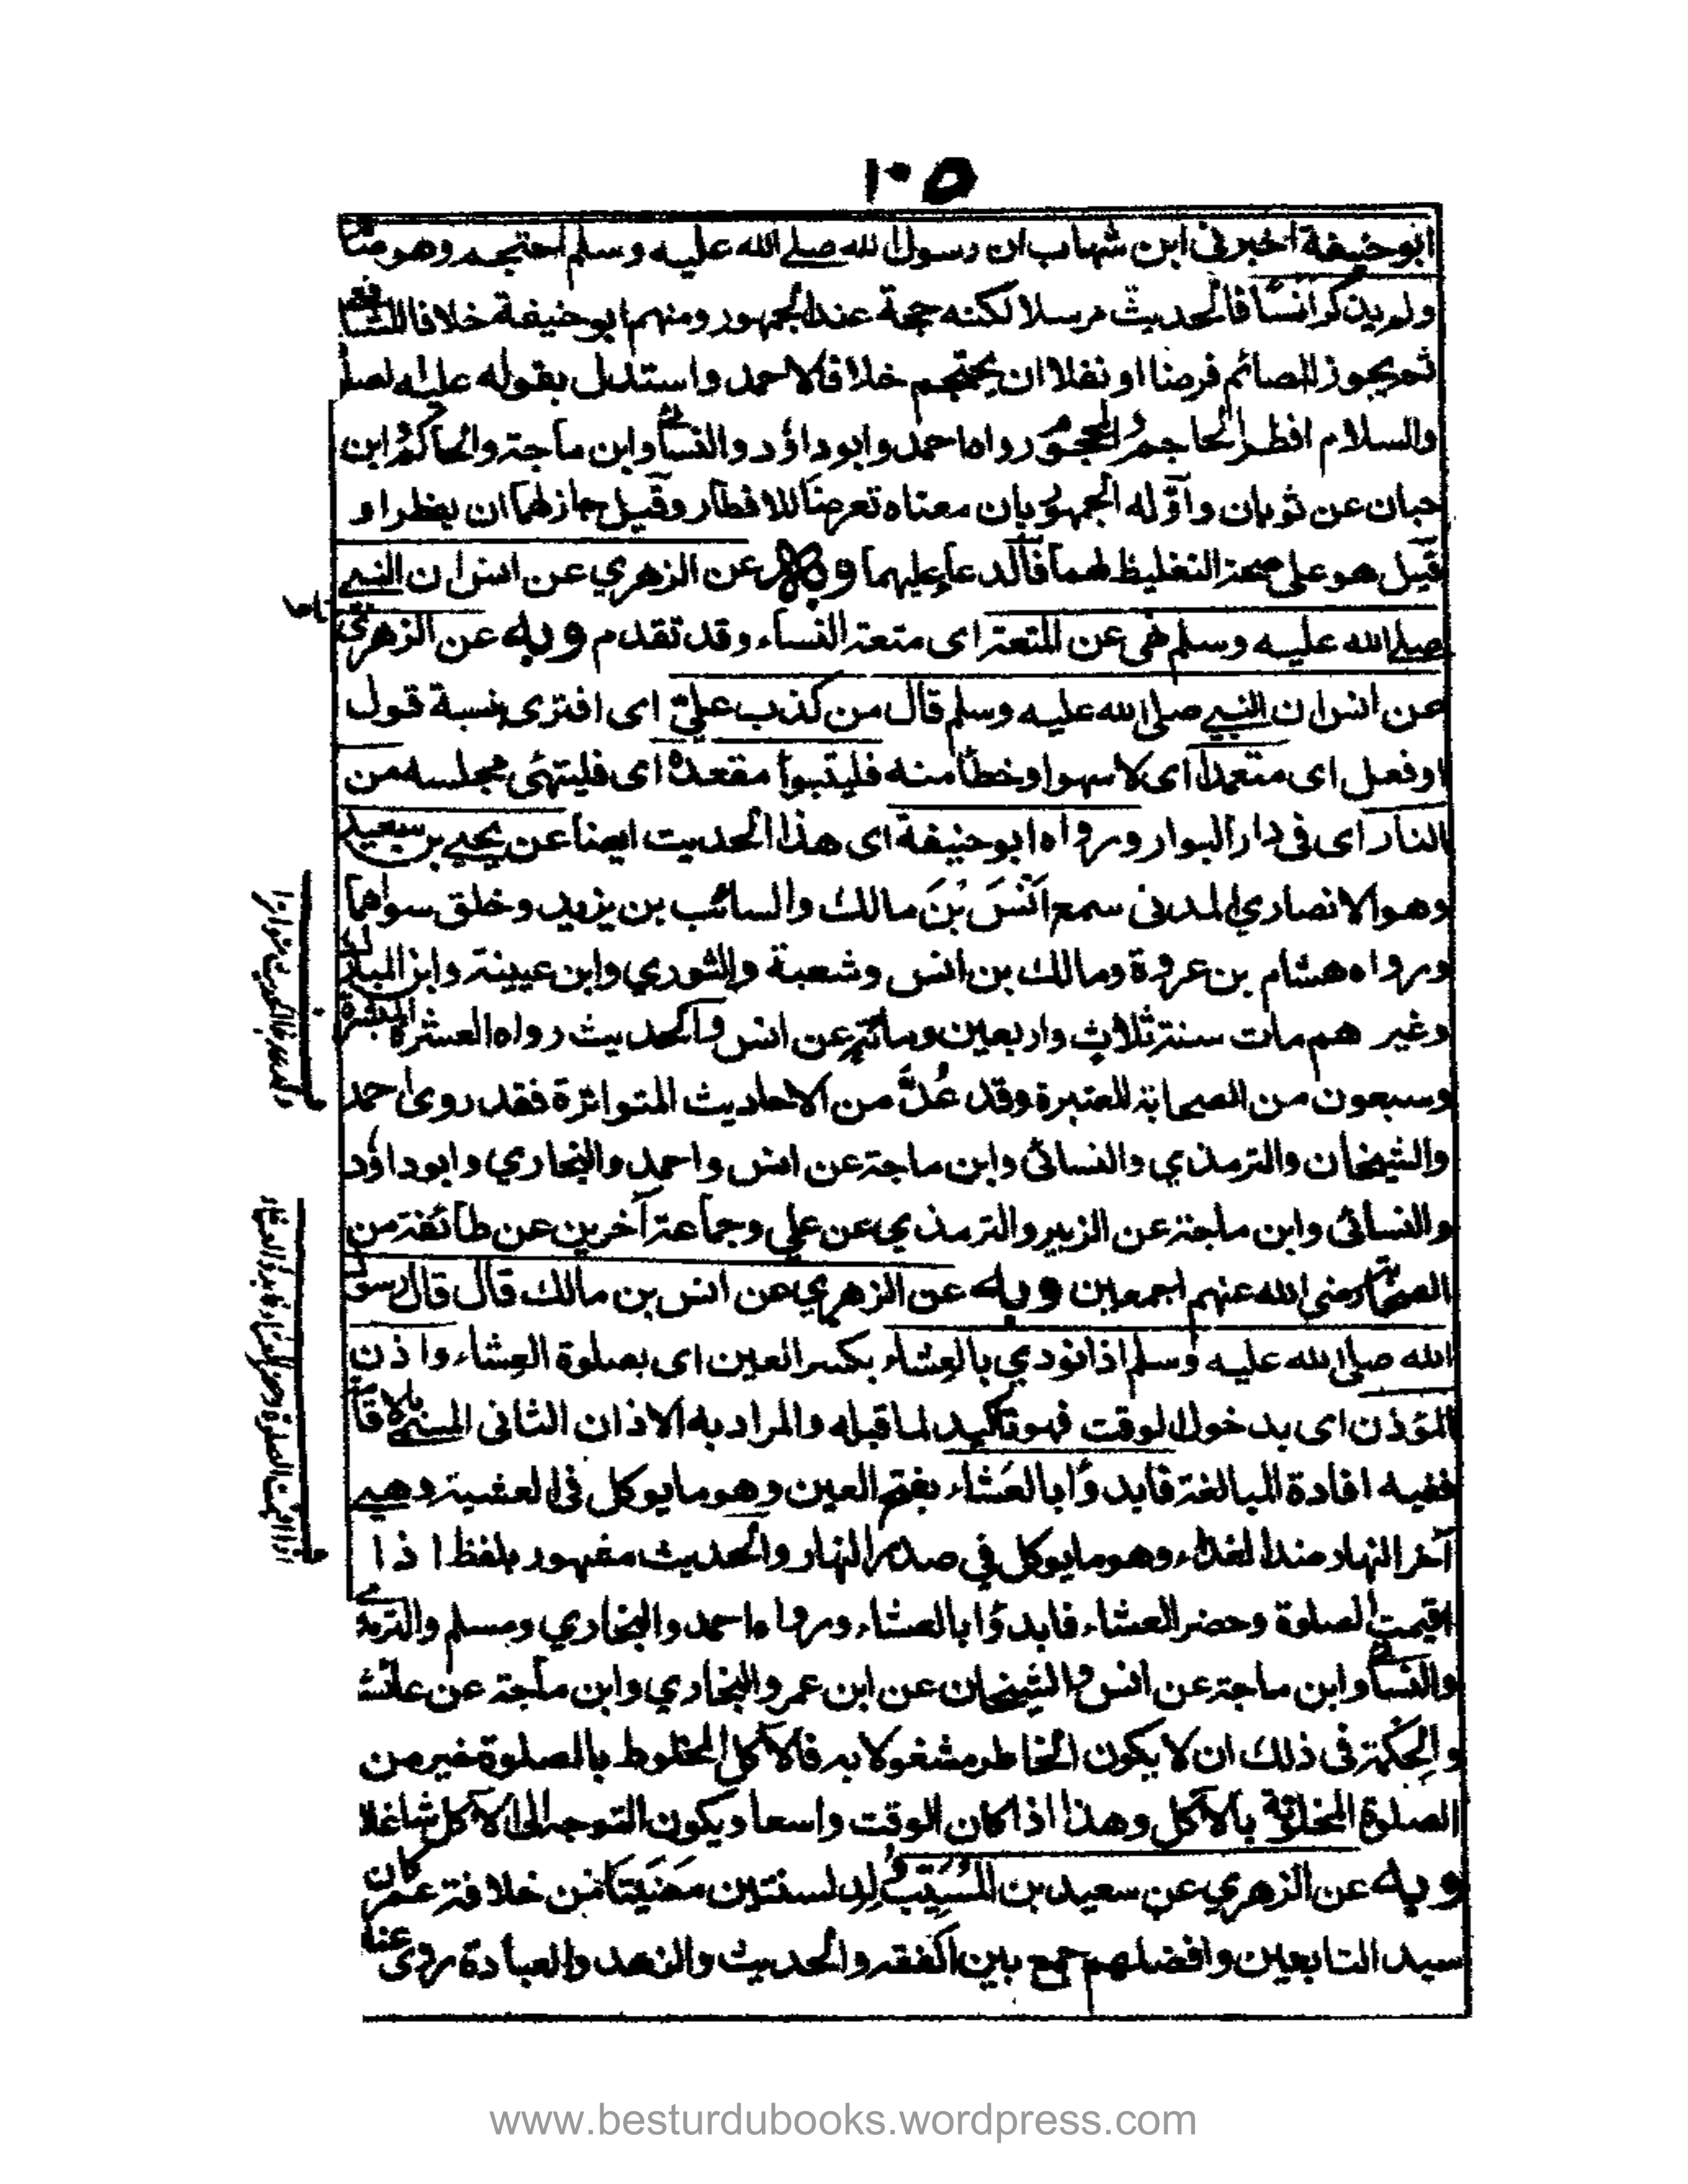 ١٠٥
ابوحنيفة اخبرني ابن شهاب ان رسول الله صلى الله عليه وسلم احتجم وهو صائم
ولم يذكر انسا فالحديث مرسلا لكنه حجة عند الجمهور ومنهم ابوحنيفة خلافا للشافعي
ثم يجوز للصائم فرضا او نفلا ان يحتجم خلافا لاحمد واستدل بقوله عليه الصلوة
والسلام افطر الحاجم والمحجوم رواه احمد وابوداؤد والنسائي وابن ماجة والحاكم وابن
حبان عن ثوبان واوّله الجمهور بان معناه تعرضا للافطار وقيل جاز لهما ان يفطرا و
قيل هو على صحة التغليظ لهما فالدعاء عليهما وبه عن الزهري عن انس ان النبي
صلى الله عليه وسلم نهى عن المتعة اى متعة النساء وقد تقدم وبه عن الزهري
عن انس ان النبي صلى الله عليه وسلم قال من كذب عليّ اى افترى بنسبة قول
او فعل اى متعمدا اى لا سهوا وخطأ منه فليتبوأ مقعده اى فليتهئ مجلسه من
النار اى في دار البوار ورواه ابوحنيفة اى هذا الحديث ايضا عن يحيى بن سعيد
وهو الانصاري المدنى سمع اَنَسَ بْنَ مالك والسائب بن يزيد وخلق سواهما
ورواه هشام بن عروة ومالك بن انس وشعبة والثوري وابن عيينة وابن المبارك
وغير هم مات سنة ثلاث واربعين ومائة عن انس والحديث رواه العشرة المبشرة
وسبعون من الصحابة المعتبرة وقد عُدَّ من الاحاديث المتواترة فقد روى احمد
والشيخان والترمذي والنسائى وابن ماجة عن انس واحمد والبخاري وابوداؤد
والنسائى وابن ماجة عن الزبير والترمذي عن علي وجماعة آخرين عن طائفة من
الصحابة رضى الله عنهم اجمعين وبه عن الزهري عن انس بن مالك قال قال رسول
الله صلى الله عليه وسلم اذا نودي بالعِشاء بكسر العين اى بصلوة العِشاء واذن
المؤذن اى بدخول الوقت فهو تاكيد لما قبله والمراد به الاذان الثانى المسمى بالاقامة
ففيه افادة المبالغة فابدؤا بالعَشاء بفتح العين وهو ما يوكل في العشية وهي
آخر النهار ضد الغداء وهو ما يوكل في صدر النهار والحديث مشهور بلفظ اذا
اقيمت الصلوة وحضر العشاء فابدؤا بالعشاء ورواه احمد والبخاري ومسلم والترمذي
والنسائي وابن ماجة عن انس والشيخان عن ابن عمر والبخاري وابن ماجة عن عائشة
والحكمة في ذلك ان لا يكون الخاطر مشغولا به فالاكل المخلوط بالصلوة خير من
الصلوة المخلوطة بالاكل وهذا اذا كان الوقت واسعا ويكون التوجه الى الاكل شاغلا
وبه عن الزهري عن سعيد بن المسيّب وُلِد لسنتين مَضَيَتَا من خلافة عمر كان
سيد التابعين وافضلهم جمع بين الفقه والحديث والزهد والعبادة روى عنه
www.besturdubooks.wordpress.com